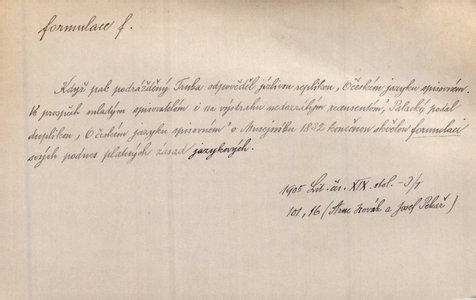 formulace f.
Když pak podrážděný Trnka odpověděl jízlivou replikou „O českém jazyku spisovném.
K prospěchu mladým spisovatelům i na výstrahu nedozrálým recensentům", Palacký podal
duplikou „O českém jazyku spisovném" v Musejníku 1832 konečnou skvělou formulaci
svých podnes platných zásad jazykových.
1905 Lit. čes. XIX. stol. - 3/1
101, 16 (Arne Novák a Josef Pekař)